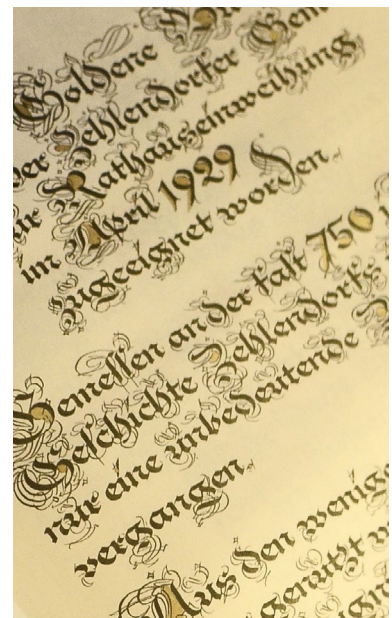 Goldene
der Zehlendorfer Gem
zur Rathauseinweihung
im April 1929
zugeeignet worden.
Gemessen an der fast 750
Geschichte Zehlendorfs
nur eine unbedeutende
vergangen.
Aus den wenig
genutzt